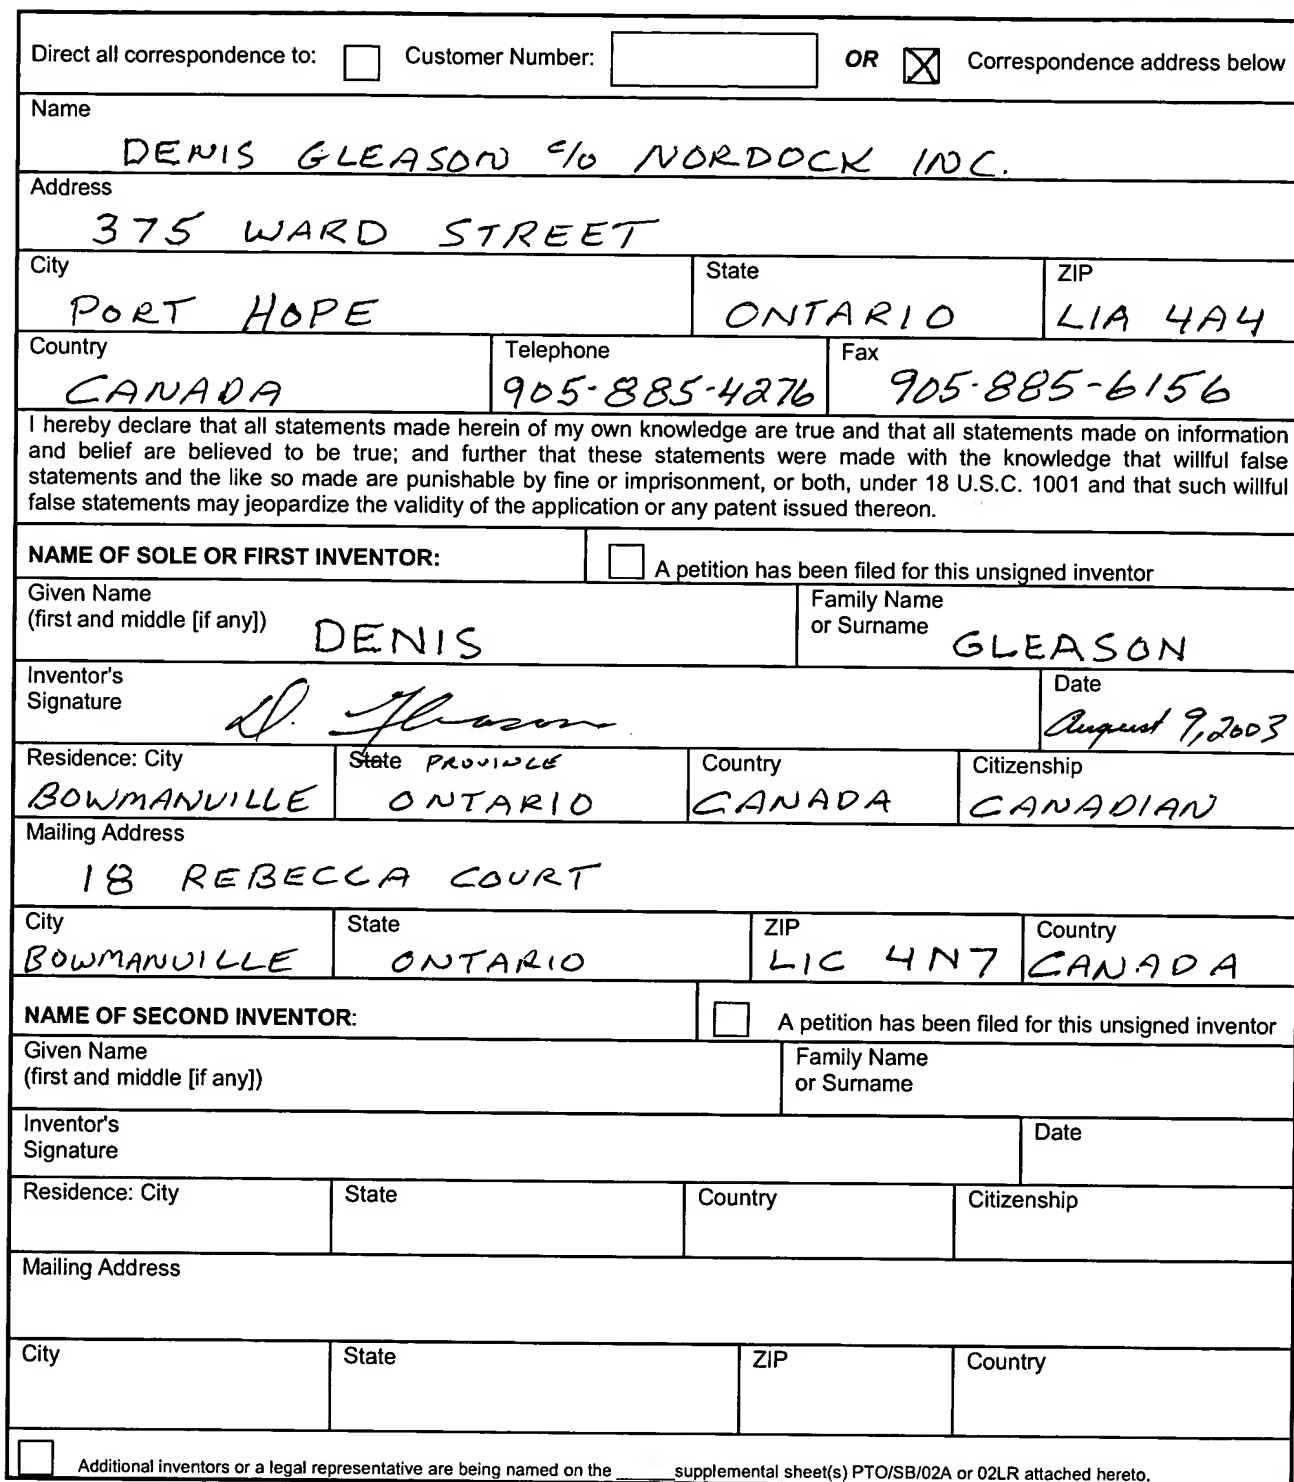 Direct all correspondence to: Customer Number: OR Correspondence address below
Name
DENIS GLEASON c/o NORDOCK INC.
Address
375 WARD STREET
City State ZIP
PORT HOPE ONTARIO L1A 4A4
Country Telephone Fax
CANADA 905-885-4276 905-885-6156
I hereby declare that all statements made herein of my own knowledge are true and that all statements made on information
and belief are believed to be true; and further that these statements were made with the knowledge that willful false
statements and the like so made are punishable by fine or imprisonment, or both, under 18 U.S.C. 1001 and that such willful
false statements may jeopardize the validity of the application or any patent issued thereon.
NAME OF SOLE OR FIRST INVENTOR: A petition has been filed for this unsigned inventor
Given Name Family Name
(first and middle [if any]) DENIS or Surname GLEASON
Inventor's Date
Signature D. Gleason August 9, 2003
Residence: City State PROVINCE Country Citizenship
BOWMANVILLE ONTARIO CANADA CANADIAN
Mailing Address
18 REBECCA COURT
City State ZIP Country
BOWMANVILLE ONTARIO L1C 4N7 CANADA
NAME OF SECOND INVENTOR: A petition has been filed for this unsigned inventor
Given Name Family Name
(first and middle [if any]) or Surname
Inventor's Date
Signature
Residence: City State Country Citizenship
Mailing Address
City State ZIP Country
Additional inventors or a legal representative are being named on the _____ supplemental sheet(s) PTO/SB/02A or 02LR attached hereto.